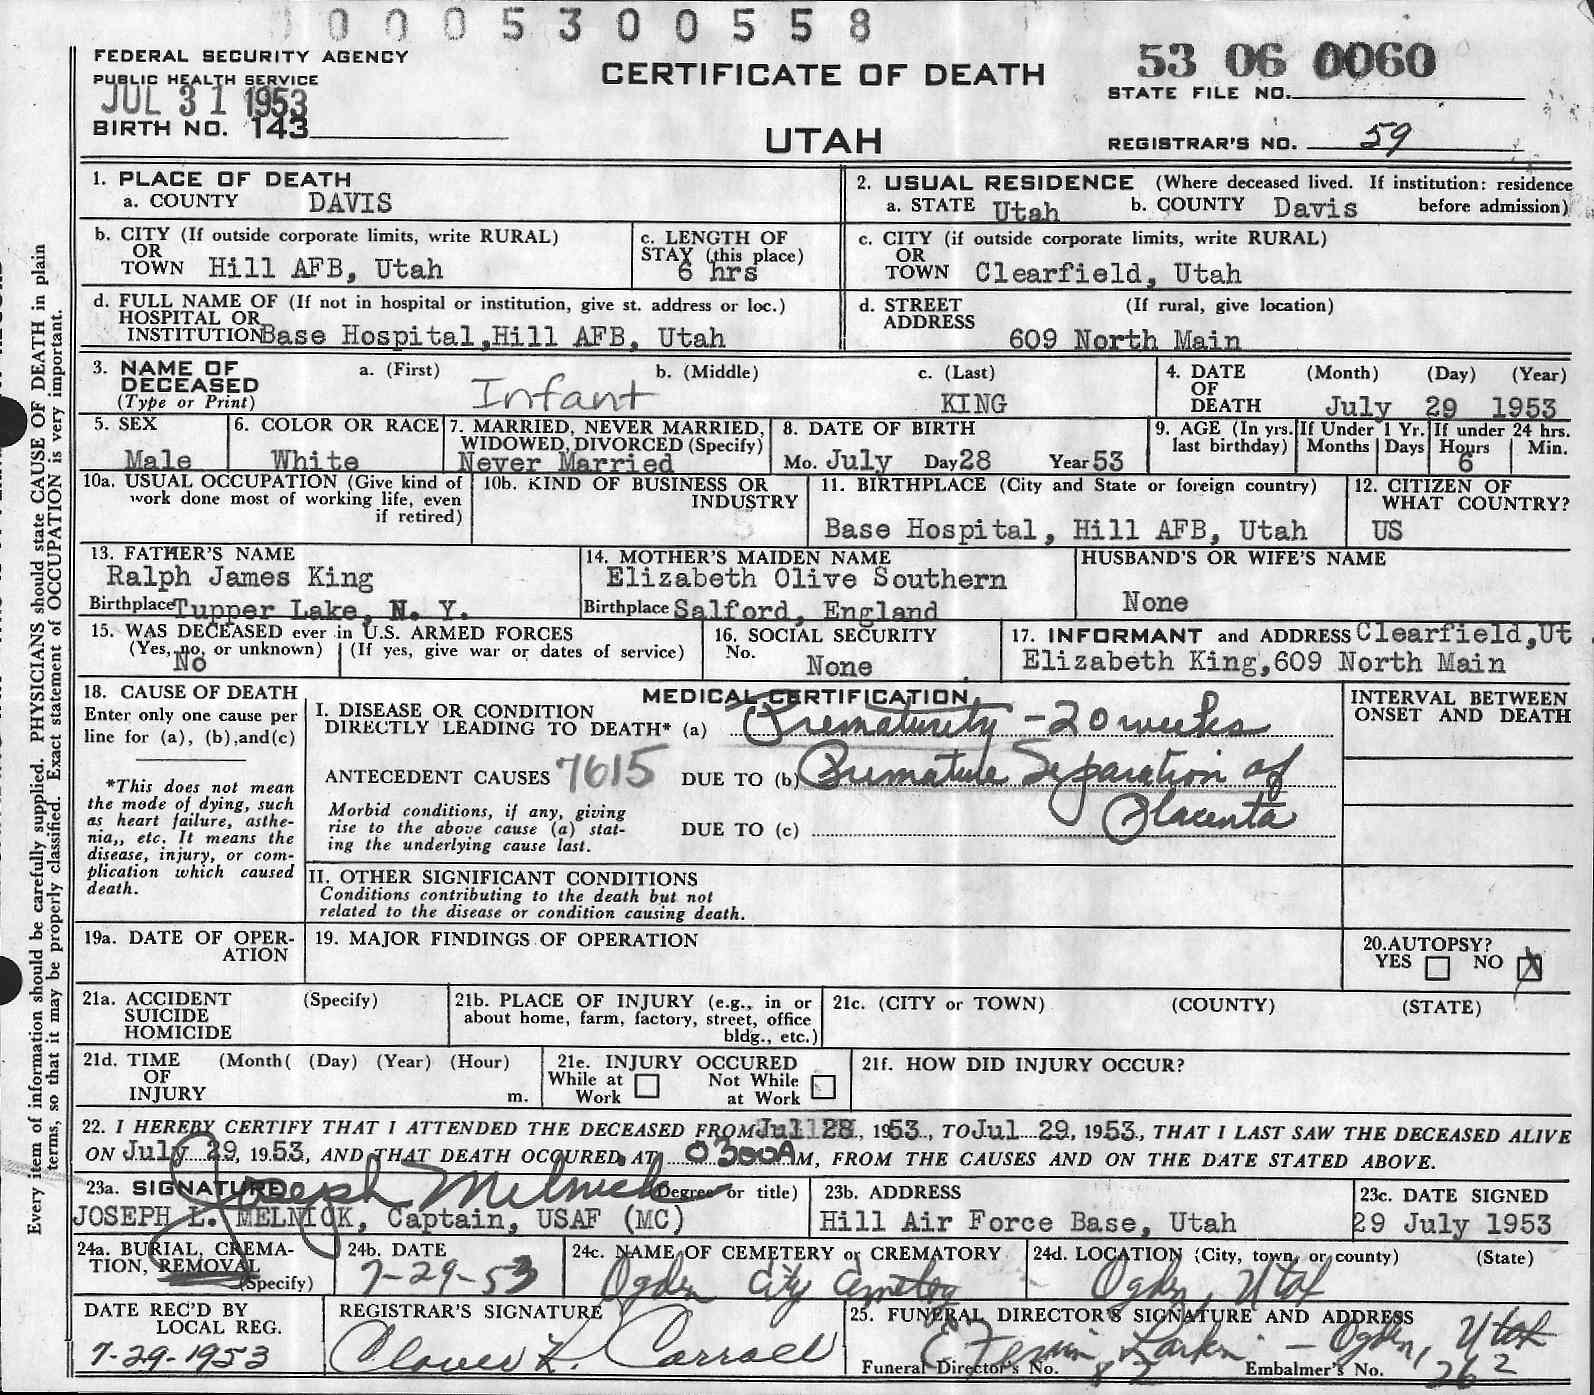 0 0 0 5 3 0 0 5 5 8
FEDERAL SECURITY AGENCY
PUBLIC HEALTH SERVICE
JUL 31 1953
BIRTH NO. 143
CERTIFICATE OF DEATH
UTAH
53 06 0060
STATE FILE NO.
REGISTRAR'S NO. 59
Every item of information should be carefully supplied. PHYSICIANS should state CAUSE OF DEATH in plain
terms, so that it may be properly classified. Exact statement of OCCUPATION is very important.
1. PLACE OF DEATH
a. COUNTY DAVIS
2. USUAL RESIDENCE (Where deceased lived. If institution: residence
a. STATE Utah b. COUNTY Davis before admission)
b. CITY (If outside corporate limits, write RURAL)
OR
TOWN Hill AFB, Utah
c. LENGTH OF
STAY (this place)
6 hrs
c. CITY (if outside corporate limits, write RURAL)
OR
TOWN Clearfield, Utah
d. FULL NAME OF (If not in hospital or institution, give st. address or loc.)
HOSPITAL OR
INSTITUTION Base Hospital, Hill AFB, Utah
d. STREET (If rural, give location)
ADDRESS
609 North Main
3. NAME OF a. (First) b. (Middle) c. (Last)
DECEASED
(Type or Print) Infant KING
4. DATE (Month) (Day) (Year)
OF
DEATH July 29 1953
5. SEX
Male
6. COLOR OR RACE
White
7. MARRIED, NEVER MARRIED,
WIDOWED, DIVORCED (Specify)
Never Married
8. DATE OF BIRTH
Mo. July Day 28 Year 53
9. AGE (In yrs.
last birthday)
If Under 1 Yr.
Months Days
If under 24 hrs.
Hours Min.
6
10a. USUAL OCCUPATION (Give kind of
work done most of working life, even
if retired)
10b. KIND OF BUSINESS OR
INDUSTRY
11. BIRTHPLACE (City and State or foreign country)
Base Hospital, Hill AFB, Utah
12. CITIZEN OF
WHAT COUNTRY?
US
13. FATHER'S NAME
Ralph James King
Birthplace Tupper Lake, N. Y.
14. MOTHER'S MAIDEN NAME
Elizabeth Olive Southern
Birthplace Salford, England
HUSBAND'S OR WIFE'S NAME
None
15. WAS DECEASED ever in U.S. ARMED FORCES
(Yes, no, or unknown) (If yes, give war or dates of service)
No
16. SOCIAL SECURITY
No.
None
17. INFORMANT and ADDRESS Clearfield, Ut
Elizabeth King, 609 North Main
18. CAUSE OF DEATH
Enter only one cause per
line for (a), (b), and (c)
*This does not mean
the mode of dying, such
as heart failure, asthe-
nia,, etc. It means the
disease, injury, or com-
plication which caused
death.
MEDICAL CERTIFICATION
I. DISEASE OR CONDITION
DIRECTLY LEADING TO DEATH* (a) Prematurity - 20 weeks
ANTECEDENT CAUSES 7615 DUE TO (b) Premature Separation of
Placenta
Morbid conditions, if any, giving
rise to the above cause (a) stat-
ing the underlying cause last.
DUE TO (c)
INTERVAL BETWEEN
ONSET AND DEATH
II. OTHER SIGNIFICANT CONDITIONS
Conditions contributing to the death but not
related to the disease or condition causing death.
19a. DATE OF OPER-
ATION
19. MAJOR FINDINGS OF OPERATION
20. AUTOPSY?
YES NO X
21a. ACCIDENT (Specify)
SUICIDE
HOMICIDE
21b. PLACE OF INJURY (e.g., in or
about home, farm, factory, street, office
bldg., etc.)
21c. (CITY or TOWN) (COUNTY) (STATE)
21d. TIME (Month( (Day) (Year) (Hour)
OF
INJURY m.
21e. INJURY OCCURED
While at Not While
Work at Work
21f. HOW DID INJURY OCCUR?
22. I HEREBY CERTIFY THAT I ATTENDED THE DECEASED FROM Jul 28, 1953, TO Jul 29, 1953, THAT I LAST SAW THE DECEASED ALIVE
ON July 29, 1953, AND THAT DEATH OCCURED AT 0300A M, FROM THE CAUSES AND ON THE DATE STATED ABOVE.
23a. SIGNATURE Joseph Melnick (Degree or title)
JOSEPH L. MELNICK, Captain, USAF (MC)
23b. ADDRESS
Hill Air Force Base, Utah
23c. DATE SIGNED
29 July 1953
24a. BURIAL, CREMA-
TION, REMOVAL
(Specify)
24b. DATE
7-29-53
24c. NAME OF CEMETERY or CREMATORY
Ogden City Cemetery
24d. LOCATION (City, town, or county) (State)
Ogden, Utah
DATE REC'D BY
LOCAL REG.
7-29-1953
REGISTRAR'S SIGNATURE
Clover L. Carroll
25. FUNERAL DIRECTOR'S SIGNATURE AND ADDRESS
Larkin - Ogden, Utah
Funeral Director's No. 82 Embalmer's No. 262